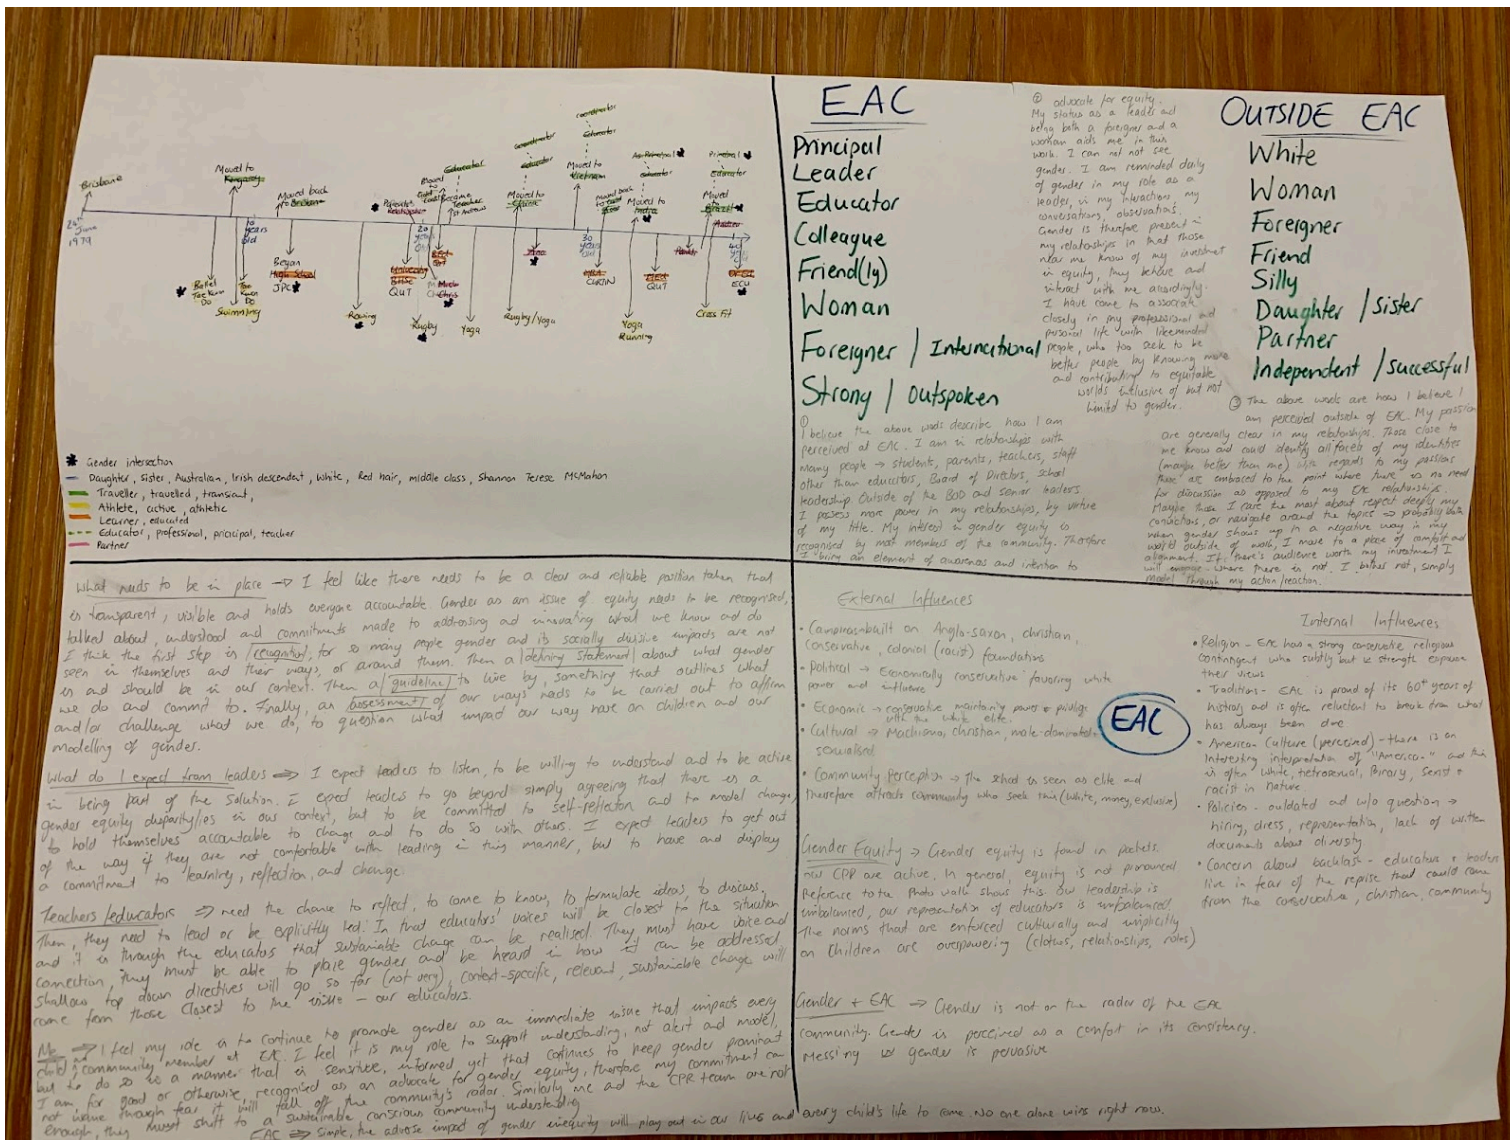 Brisbane
Moved to
Hong Kong
Moved back
to Brisbane
Parents
Relationship
Moved to
East Coast
Became
Teacher
St Andrews
Educator
Moved to
China
Educator
Coordinator
Moved to
Vietnam
Educator
Coordinator
Moved back
Moved to
India
Educator
Moved
Brazil
Educator
Principal
Partner
24th
June
1979
10
years
old
20
years
old
30
years
old
40
Ballet
Tae Kwon
Do
Tae
Kwon
Do
Swimming
Began
High School
JPC
Rowing
University
QUT
Rugby
Chris
Yoga
Rugby/Yoga
CURTIN
Yoga
Running
MEd
QUT
Cross Fit
ECU
Gender intersection
Daughter, Sister, Australian, Irish descendent, white, Red hair, middle class, Shannon Terese McMahon
Traveller, travelled, transient,
Athlete, active, athletic
Learner, educated
Educator, professional, principal, teacher
Partner
EAC
Principal
Leader
Educator
Colleague
Friend(ly)
Woman
Foreigner / International
Strong / Outspoken
① I believe the above words describe how I am
perceived at EAC. I am in relationships with
many people → students, parents, teachers, staff
other than educators, Board of Directors, school
leadership. Outside of the BOD and senior leaders
I possess more power in my relationships, by virtue
of my title. My interest in gender equity is
recognised by most members of the community. Therefore
I bring an element of awareness and intention to
② advocate for equity.
My status as a leader and
being both a foreigner and a
woman aids me in this
work. I can not not see
gender. I am reminded daily
of gender in my role as a
leader, in my interactions, my
conversations, observations.
Gender is therefore present in
my relationships in that those
near me know of my investment
in equity, may behave and
interact with me accordingly.
I have come to associate
closely in my professional and
personal life with likeminded
people, who too seek to be
better people by knowing more
and contributing to equitable
worlds inclusive of but not
limited to gender.
OUTSIDE EAC
White
Woman
Foreigner
Friend
Silly
Daughter / Sister
Partner
Independent / successful
③ The above words are how I believe I
am perceived outside of EAC. My passions
are generally clear in my relationships. Those close to
me know and could identify all facets of my identities
(maybe better than me) with regards to my passions
these are embraced to the point where there is no need
for discussion as opposed to my EAC relationships.
Maybe those I care the most about respect deeply my
convictions, or navigate around the topics → probably both
when gender shows up in a negative way in my
world outside of work, I move to a place of comfort and
alignment. If there's audience worth my investment I
will engage where there is not. I bother not, simply
model through my action/reaction.
What needs to be in place → I feel like there needs to be a clear and reliable position taken that
is transparent, visible and holds everyone accountable. Gender as an issue of equity needs to be recognised,
talked about, understood and commitments made to addressing and innovating what we know and do
I think the first step is recognition, for so many people gender and its socially divisive impacts are not
seen in themselves and their ways, or around them. Then a defining statement about what gender
is and should be in our context. Then a guideline to live by, something that outlines what
we do and commit to. Finally, an assessment of our ways needs to be carried out to affirm
and/or challenge what we do, to question what impact our way have on children and our
modelling of gender.
What do I expect from leaders ⇒ I expect leaders to listen, to be willing to understand and to be active
in being part of the solution. I expect leaders to go beyond simply agreeing that there is a
gender equity disparity/ies in our context, but to be committed to self-reflection and to model change,
to hold themselves accountable to change and to do so with others. I expect leaders to get out
of the way if they are not comfortable with leading in this manner, but to have and display
a commitment to learning, reflection, and change.
Teachers/educators ⇒ need the chance to reflect, to come to know, to formulate ideas, to discuss.
Then, they need to lead or be explicitly led. In that educators' voices will be closest to the situation
and it is through the educators that sustainable change can be realised. They must have voice and
connection, they must be able to place gender and be heard in how it can be addressed
shallow top down directives will go so far (not very), context-specific, relevant, sustainable change will
come from those closest to the issue – our educators.
Me ⇒ I feel my role is to continue to promote gender as an immediate issue that impacts every
child, community member at EAC. I feel it is my role to support understanding, not alert and model,
but to do so in a manner that is sensitive, informed yet that continues to keep gender prominant
I am, for good or otherwise, recognised as an advocate for gender equity, therefore my commitment can
not wane through fear it will fall off the community's radar. Similarly me and the CPR team are not
enough, this must shift to a sustainable conscious community understanding
EAC ⇒ simple, the adverse impact of gender inequity will play out in our lives and every child's life to come. No one alone wins right now.
External Influences
• Campinas built on Anglo-saxon, christian,
conservative, colonial (racist) foundations
• Political → Economically conservative favoring white
power and influence
• Economic → conservative maintaing power + privilige
with the white elite.
• Cultural → Machismo, christian, male-dominated
sexualised
• Community Perception → The school is seen as elite and
therefore attracts community who seek this (white, money, exclusive)
EAC
Internal Influences
• Religion – EAC has a strong conservative religious
contingent who subtly but w strength express
their views
• Traditions – EAC is proud of its 60+ years of
history and is often reluctant to break from what
has always been done
• American Culture (perceived) – there is an
interesting interpretation of "America." and this
is often white, hetrosexual, binary, sexist +
racist in nature
• Policies – outdated and w/o question →
hiring, dress, representation, lack of written
documents about diversity.
• Concern about backlash – educators + leaders
live in fear of the reprise that could come
from the conservative, christian, community
Gender Equity → Gender equity is found in pockets.
now CPR are active. In general, equity is not pronounced
Reference to the Photo walk shows this. Our leadership is
imbalanced, our representation of educators is unbalanced.
The norms that are enforced culturally and implicitly
on children are overpowering (clothes, relationships, roles)
Gender + EAC → Gender is not on the radar of the EAC
community. Gender is perceived as a comfort in its consistency.
Messing w gender is pervasive